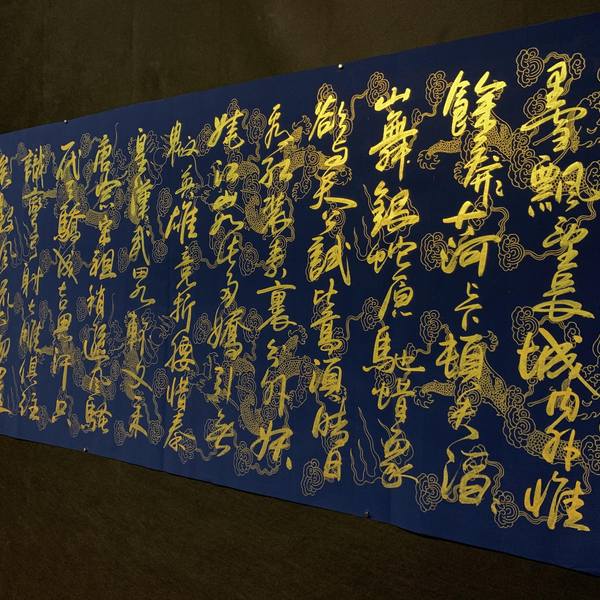 雪飄望長城内外惟
餘莽莽大河上下頓失滔
山舞銀蛇原馳蠟象
欲与天公試比高須晴日
看紅裝素裹分外妖
嬈江山如此多嬌引無
數英雄競折腰惜秦
皇漢武略輸文采
唐宗宋祖稍遜風騷
代天驕成吉思汗只
識彎弓射大雕俱往
矣數風流人物還